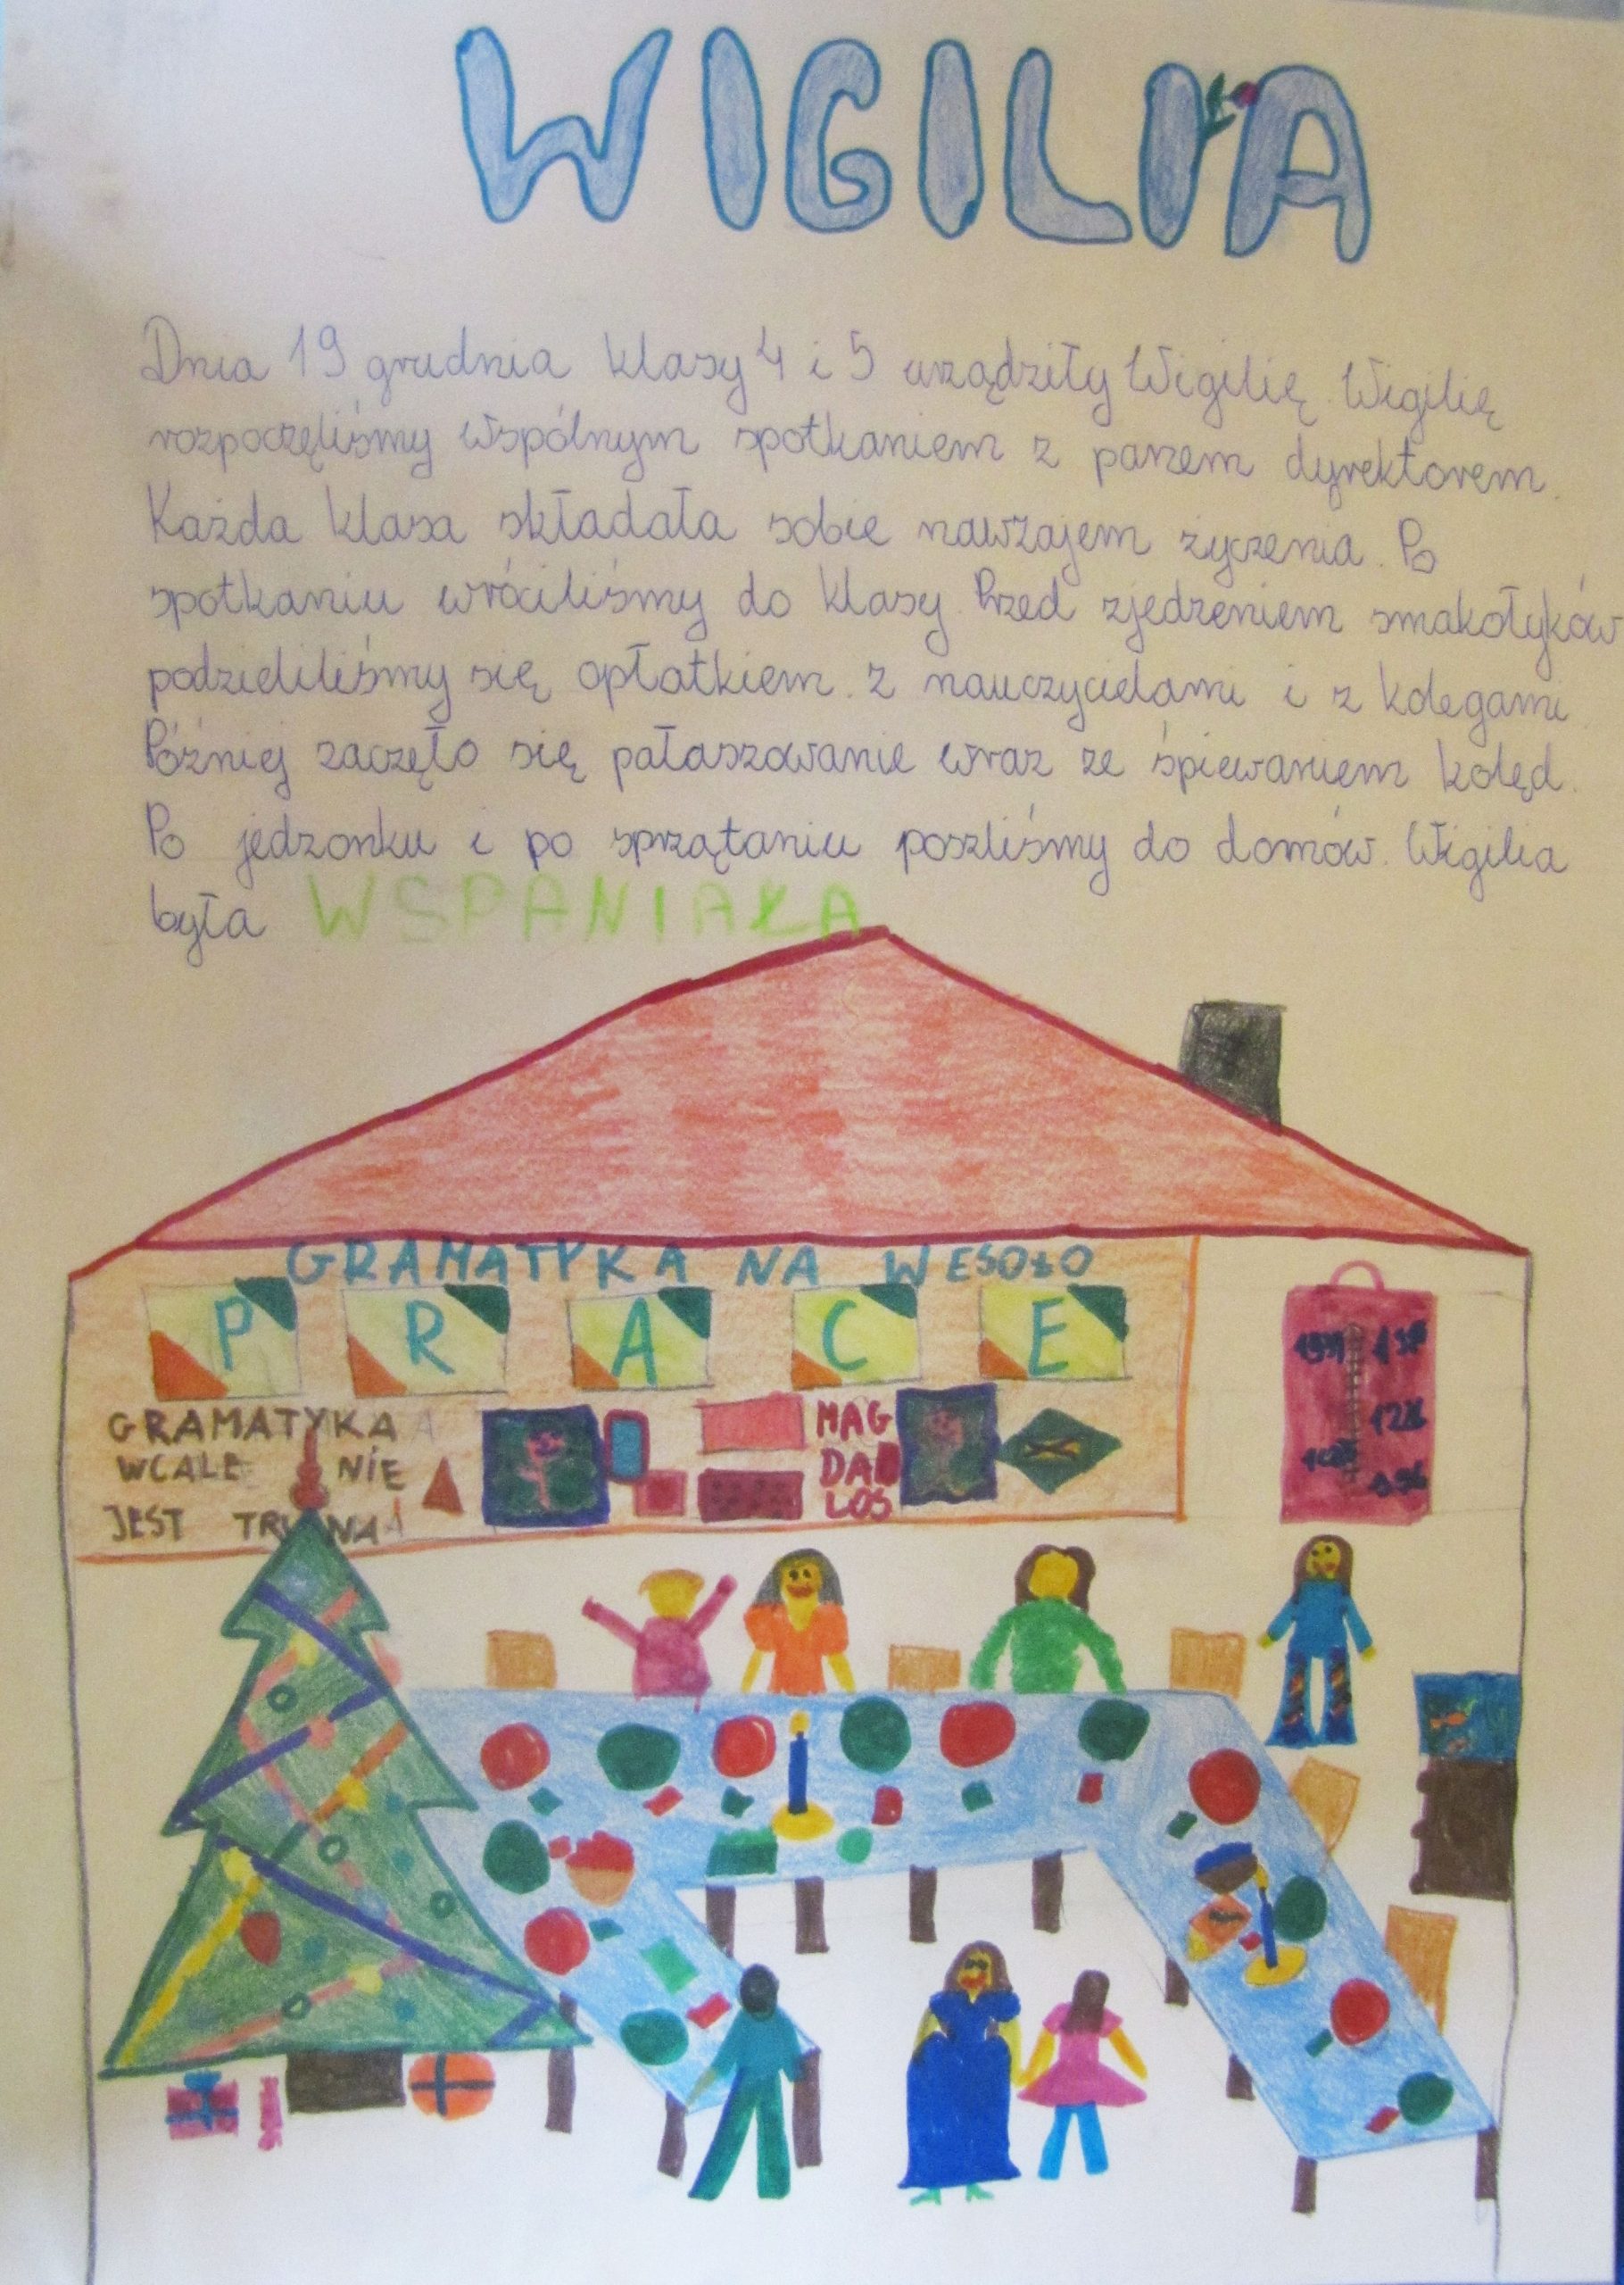 WIGILIA
Dnia 19 grudnia klasy 4 i 5 urządziły Wigilię. Wigilię
rozpoczęliśmy wspólnym spotkaniem z panem dyrektorem.
Każda klasa składała sobie nawzajem życzenia. Po
spotkaniu wróciliśmy do klasy. Przed zjedzeniem smakołyków
podzieliliśmy się opłatkiem z nauczycielami i z kolegami.
Później zaczęło się pałaszowanie wraz ze śpiewaniem kolęd.
Po jedzonku i po sprzątaniu poszliśmy do domów. Wigilia
była WSPANIAŁA
GRAMATYKA NA WESOŁO
P R A C E
GRAMATYKA
WCALE NIE
JEST TRUDNA
MAG
DA
LOS